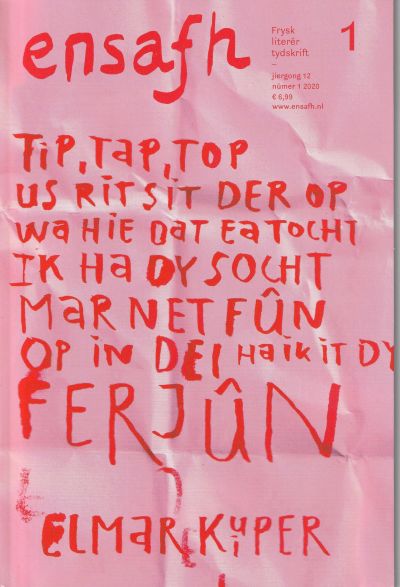 ensafh
Frysk
literêr
tydskrift
–
jiergong 12
nûmer 1 2020
€ 6,99
www.ensafh.nl
1
TiP, TaP, TOP
US RIT SIT DER OP
Wa HIE DaT Ea TOCHT
IK Ha DY SOCHT
MaR NET FÛN
OP iN DEI Ha iK iT DY
FERJÛN
ELMAR KUIPER